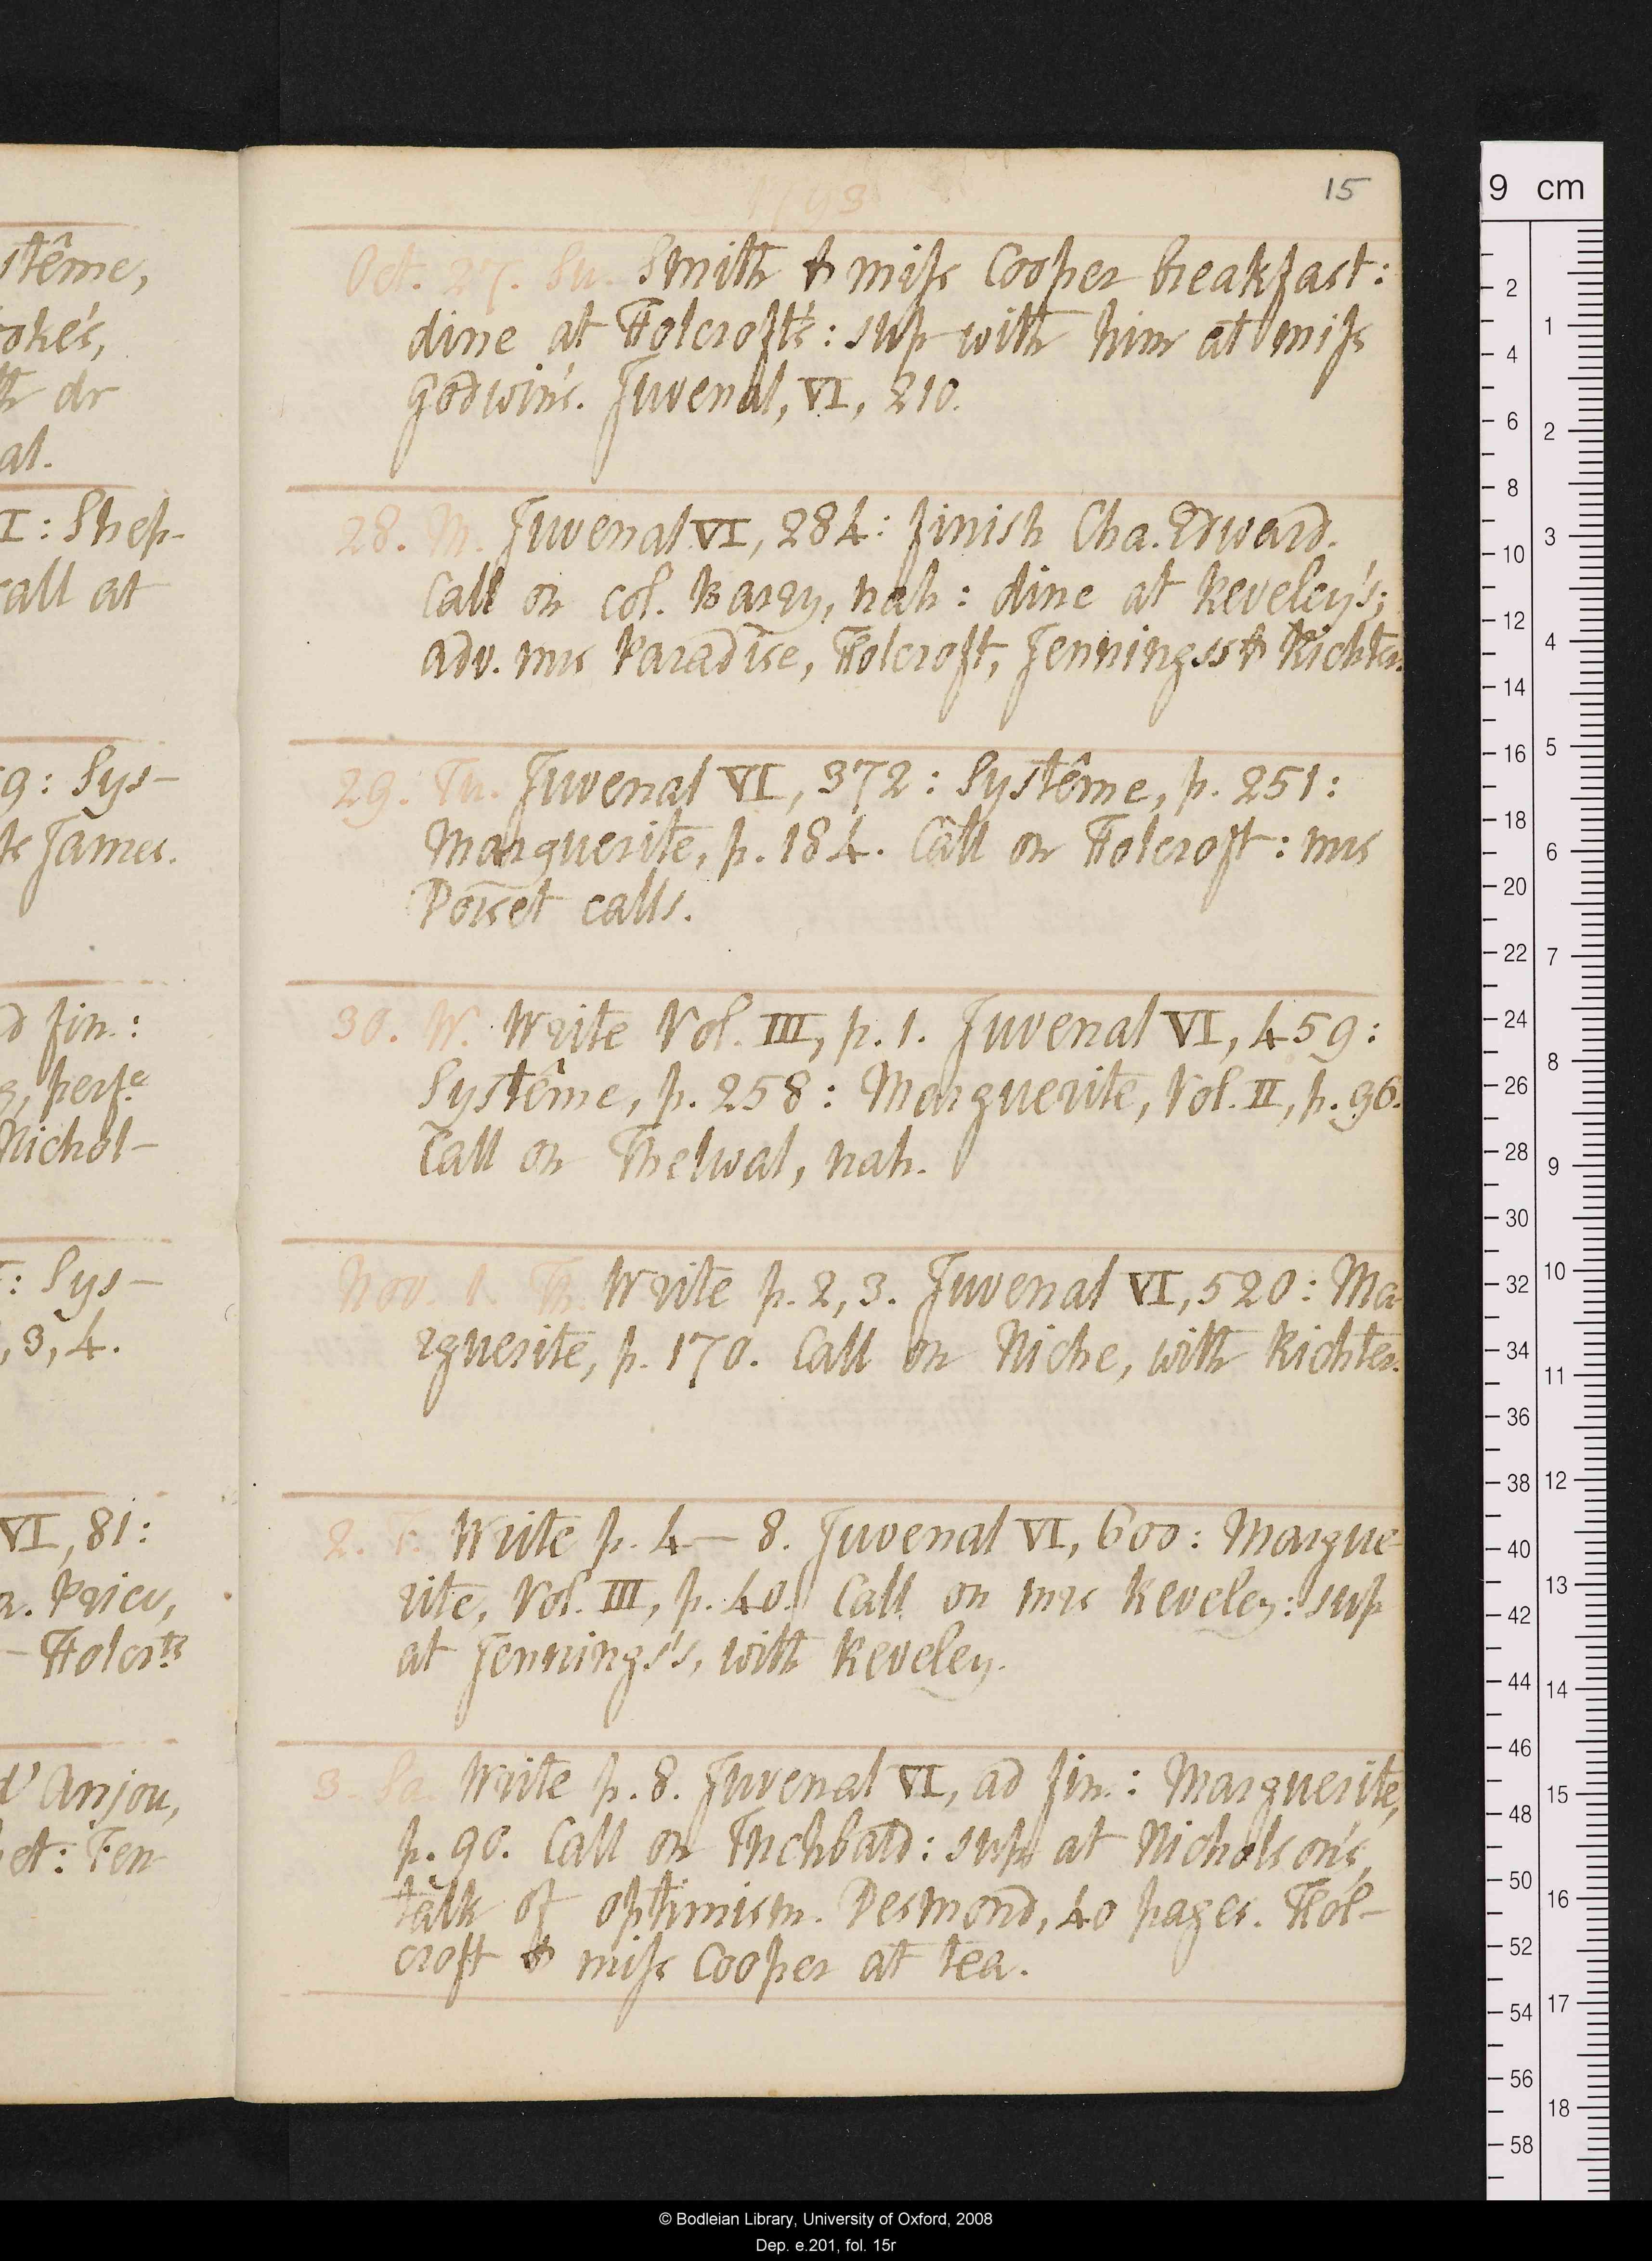 stême,
oke's,
dr
al.
I: Shep-
call at
9: Sys-
James.
d fin.:
Nichol-
: Sys-
, 3, 4.
VI, 81:
a. Price,
- Holcrts
d'Anjou,
et: Fen
1793
15
Oct. 27. Su. Smith & miss Cooper breakfast:
dine at Holcroft's: sup with him at miss
Godwin's. Juvenal, VI, 210.
28. M. Juvenal VI, 284: finish Cha. Edward.
Call on col. Barry, nah: dine at Reveley's;
adv. mrs Paradise, Holcroft, Jenningss & Richter.
29. Tu. Juvenal VI, 372: Systême, p. 251:
Marguerite, p. 184. Call on Holcroft: mrs
Poiset calls.
30. W. Write Vol. III, p. 1. Juvenal VI, 459:
Systême, p. 258: Marguerite, Vol. II, p. 96.
Call on Thelwal, nah.
Nov. 1. Th. Write p. 2, 3. Juvenal VI, 520: Ma-
rguerite, p. 170. Call on Niche, with Richter.
2. F. Write p. 4-8. Juvenal VI, 600: Margue-
rite, Vol. III, p. 40. Call on mrs Reveley: sup
at Jennings's, with Reveley.
3. Sa. Write p. 8. Juvenal VI, ad fin.: Marguerite,
p. 90. Call on Inchbald: sup at Nicholson's,
talk of optimism. Desmond, 40 pages. Hol-
croft & miss Cooper at tea.
9 cm
2
4
6
8
10
12
14
16
18
20
22
24
26
28
30
32
34
36
38
40
42
44
46
48
50
52
54
56
58
1
2
3
4
5
6
7
8
9
10
11
12
13
14
15
16
17
18
© Bodleian Library, University of Oxford, 2008
Dep. e.201, fol. 15r